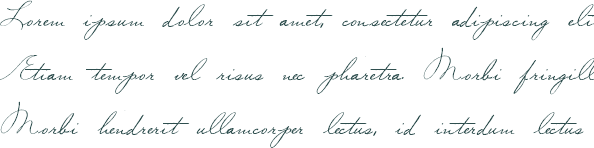 Lorem ipsum dolor sit amet, consectetur adipiscing eli
Etiam tempor vel risus nec pharetra. Morbi fringill
Morbi hendrerit ullamcorper lectus, id interdum lectus